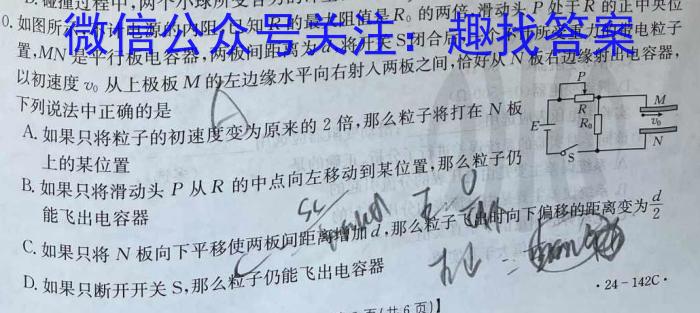 D.碰撞过程中,两个小球所受合
0.如图所 电源的内阻 已知R的最大阻值是R₀的两倍,滑动头P处于R的正中央位
微信公众号关注:趣找答案
置,MN是平行板电容器,两板间距离为 将开关S闭合后, 个不 所受重力的带电粒子
以初速度v₀从上极板M的左边缘水平向右射入两板之间,恰好从N板右边缘射出电容器,
下列说法中正确的是
A.如果只将粒子的初速度变为原来的2倍,那么粒子将打在N板
上的某位置
B.如果只将滑动头P从R的中点向左移动到某位置,那么粒子仍
能飞出电容器
C.如果只将N板向下平移使两板间距离增加d,那么粒子飞出时向下偏移的距离变为d/2
D.如果只断开开关S,那么粒子仍能飞出电容器
P
R
R₀
E
S
M
v₀
N
A
·24-142C·
页(共6页)】